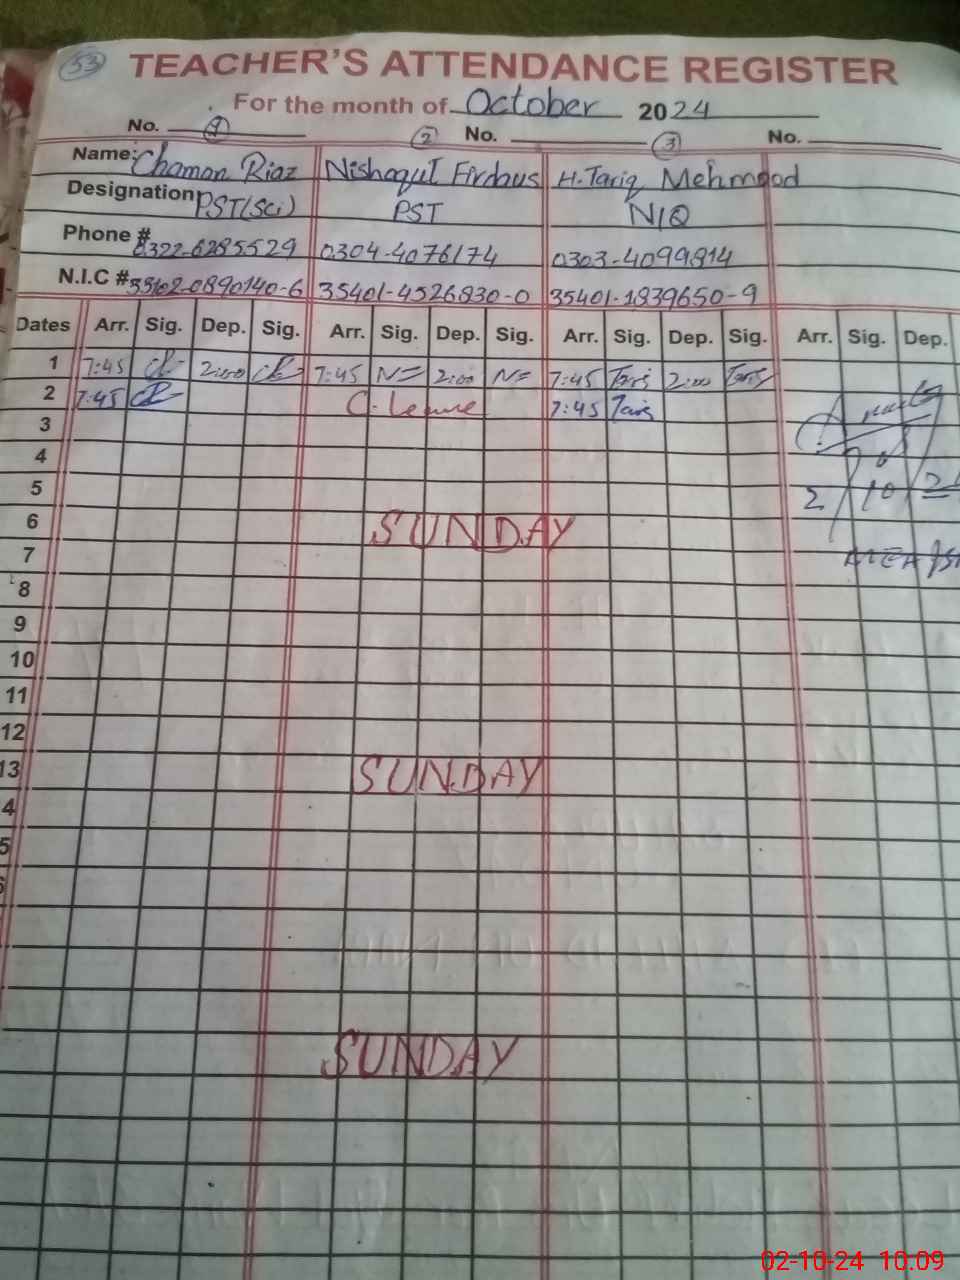 53 TEACHER'S ATTENDANCE REGISTER
For the month of October 2024
No. 1 No. 2 No. 3
Name: Chaman Riaz Nishaqul Firdous H. Tariq Mehmood
Designation PST(Sci) PST N/Q
Phone # 0322-6285529 0304-4076174 0303-4099814
N.I.C # 35102-0890140-6 35401-4526830-0 35401-1839650-9
Dates Arr. Sig. Dep. Sig. Arr. Sig. Dep. Sig. Arr. Sig. Dep. Sig. Arr. Sig. Dep.
1 7:45 2:00 7:45 N= 2:00 N= 7:45 Tariq 2:00 Tariq
2 7:45 C. Leave 7:45 Tariq
3
4
5 2/10/2
6 SUNDAY
7 MEA
8
9
10
11
12
13 SUNDAY
4
5
6
SUNDAY
02-10-24 10.09